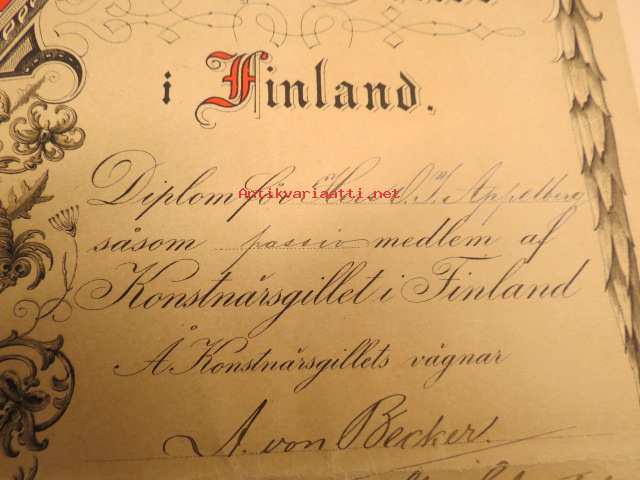 i Finland.
Diplom för Herr O. T. Appelberg
Antikvariaatti.net
såsom passiv medlem af
Konstnärsgillet i Finland
Å Konstnärsgillets vägnar
A. von Becker.